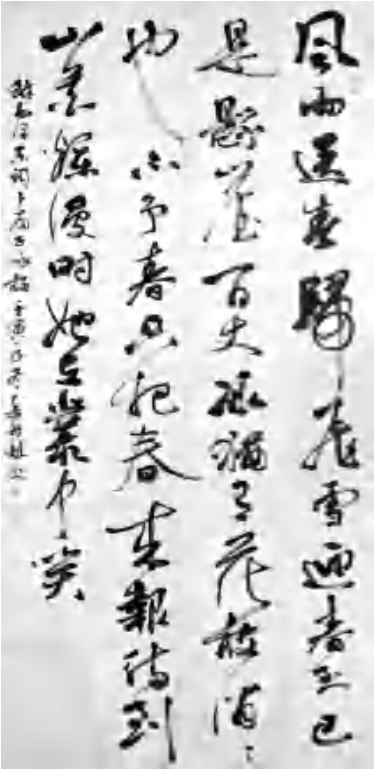 風雨送春歸飛雪迎春到已
是懸崖百丈冰猶有花枝俏〻
也不爭春只把春來報待到
山花爛漫時她在叢中笑
毛澤東詞卜算子詠梅